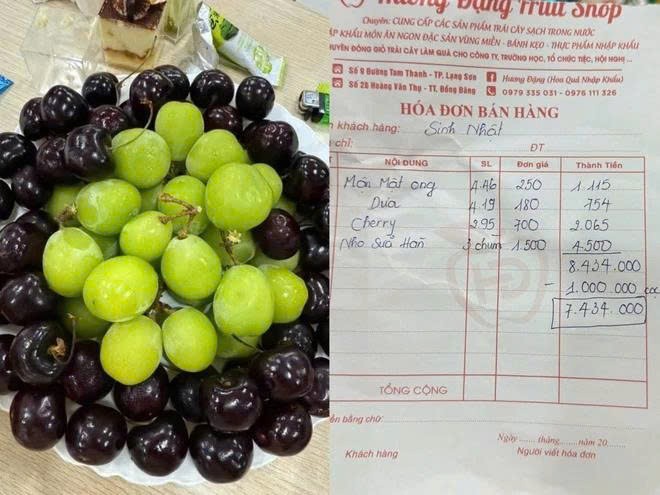 Hương Đặng Fruit Shop
Chuyên: CUNG CẤP CÁC SẢN PHẨM TRÁI CÂY SẠCH TRONG NƯỚC
KHẨU MÓN ĂN NGON ĐẶC SẢN VÙNG MIỀN - BÁNH KẸO - THỰC PHẨM NHẬP KHẨU
CHUYÊN ĐÓNG GIỎ TRÁI CÂY LÀM QUÀ CHO CÔNG TY, TRƯỜNG HỌC, TỔ CHỨC TIỆC, HỘI NGHỊ ...
Số 9 Đường Tam Thanh - TP. Lạng Sơn
Hương Đặng (Hoa Quả Nhập Khẩu)
Số 26 Hoàng Văn Thụ - TT. Đồng Đăng
0979 335 031 - 0976 111 326
HÓA ĐƠN BÁN HÀNG
khách hàng: Sinh Nhật
chỉ: ĐT
NỘI DUNG SL Đơn giá Thành Tiền
Mận Mật ong 4.46 250 1.115
Dưa 4.19 180 754
Cherry 2.95 700 2.065
Nho Sữa Hàn 3 chùm 1.500 4.500
8.434.000
- 1.000.000 cọc
7.434.000
TỔNG CỘNG
tiền bằng chữ:
Ngày ....... tháng.......năm 20.....
Khách hàng Người viết hóa đơn